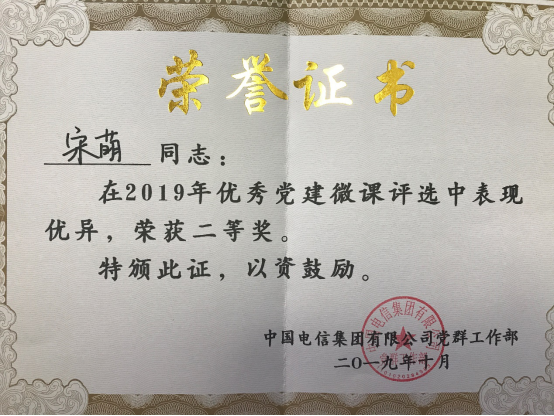 荣誉证书
宋萌 同志：
在2019年优秀党建微课评选中表现
优异，荣获二等奖。
特颁此证，以资鼓励。
中国电信集团有限公司党群工作部
二〇一九年十月